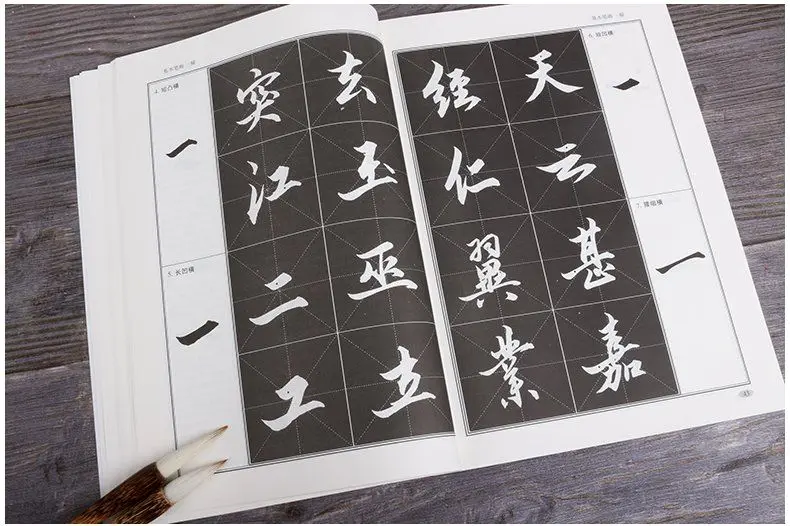 基本笔画·横
4. 短凸横
一
突 去
江 玉
5. 长凹横
一
二 巫
工 立
基本笔画·横
6. 短凹横
一
經 天
仁 云
7. 腰细横
一
翼 甚
業 嘉
43